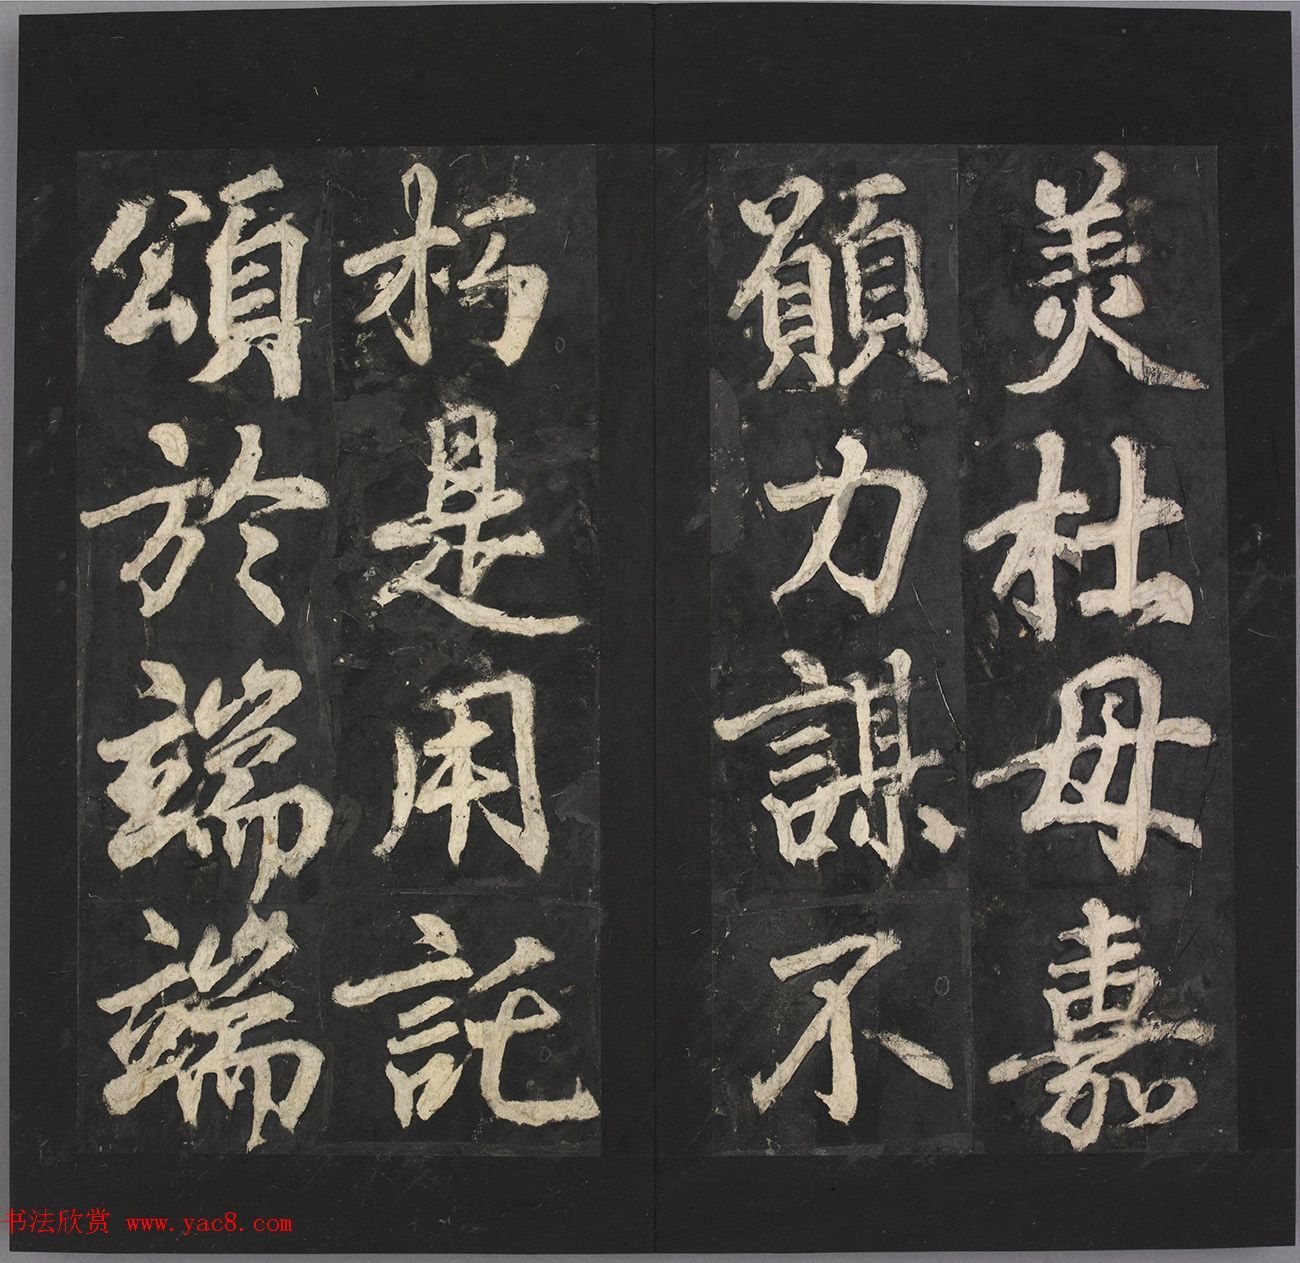 美杜母嘉
願力謀不
朽是用託
頌於端端
书法欣赏 www.yac8.com